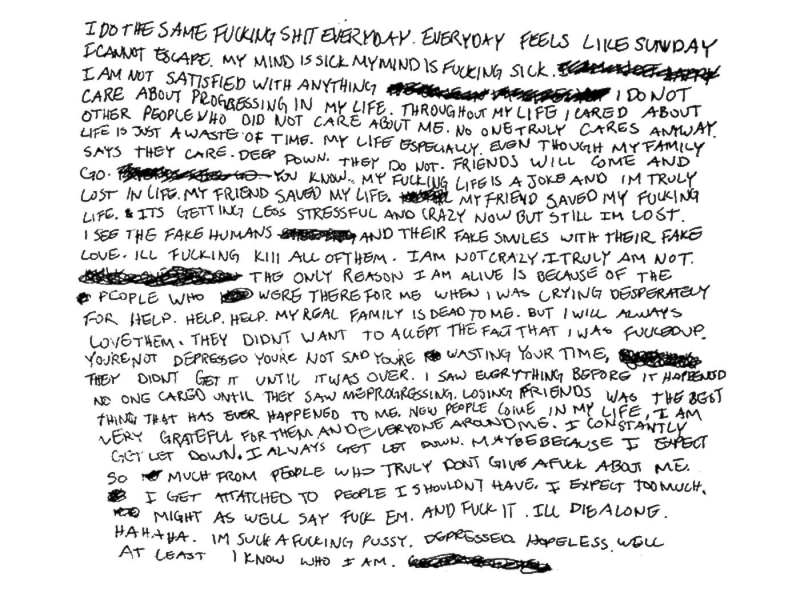 I DO THE SAME FUCKING SHIT EVERYDAY. EVERYDAY FEELS LIKE SUNDAY
I CANNOT ESCAPE. MY MIND IS SICK MY MIND IS FUCKING SICK.
I AM NOT SATISFIED WITH ANYTHING I DO NOT
CARE ABOUT PROGRESSING IN MY LIFE. THROUGHOUT MY LIFE I CARED ABOUT
OTHER PEOPLE WHO DID NOT CARE ABOUT ME. NO ONE TRULY CARES ANYWAY.
LIFE IS JUST A WASTE OF TIME. MY LIFE ESPECIALLY. EVEN THOUGH MY FAMILY
SAYS THEY CARE. DEEP DOWN. THEY DO NOT. FRIENDS WILL COME AND
GO. YOU KNOW. MY FUCKING LIFE IS A JOKE AND IM TRULY
LOST IN LIFE. MY FRIEND SAVED MY LIFE. MY FRIEND SAVED MY FUCKING
LIFE. & ITS GETTING LESS STRESSFUL AND CRAZY NOW BUT STILL IM LOST.
I SEE THE FAKE HUMANS AND THEIR FAKE SMILES WITH THEIR FAKE
LOVE. ILL FUCKING KILL ALL OF THEM. I AM NOT CRAZY. I TRULY AM NOT.
THE ONLY REASON I AM ALIVE IS BECAUSE OF THE
PEOPLE WHO WERE THERE FOR ME WHEN I WAS CRYING DESPERATELY
FOR HELP. HELP. HELP. MY REAL FAMILY IS DEAD TO ME. BUT I WILL ALWAYS
LOVE THEM. THEY DIDNT WANT TO ACCEPT THE FACT THAT I WAS FUCKED UP.
YOURE NOT DEPRESSED YOURE NOT SAD YOURE WASTING YOUR TIME,
THEY DIDNT GET IT UNTIL IT WAS OVER. I SAW EVERYTHING BEFORE IT HAPPENED
NO ONE CARED UNTIL THEY SAW ME PROGRESSING. LOSING FRIENDS WAS THE BEST
THING THAT HAS EVER HAPPENED TO ME. NEW PEOPLE COME IN MY LIFE, I AM
VERY GRATEFUL FOR THEM AND EVERYONE AROUND ME. I CONSTANTLY
GET LET DOWN. I ALWAYS GET LET DOWN. MAYBE BECAUSE I EXPECT
SO MUCH FROM PEOPLE WHO TRULY DONT GIVE A FUCK ABOUT ME.
I GET ATTATCHED TO PEOPLE I SHOULDNT HAVE. I EXPECT TOO MUCH.
MIGHT AS WELL SAY FUCK EM. AND FUCK IT. ILL DIE ALONE.
HAHAHA. IM SUCH A FUCKING PUSSY. DEPRESSED. HOPELESS. WELL
AT LEAST I KNOW WHO I AM.